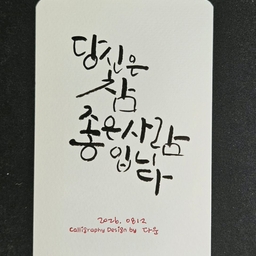 당신은
참
좋은사람
입니다
2026. 0812
Calligraphy Design by 다온